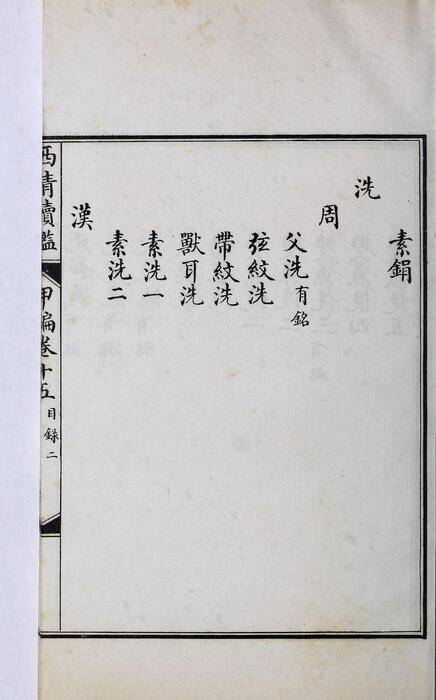 素鋗
洗
周
父洗有銘
弦紋洗
帶紋洗
獸耳洗
素洗一
素洗二
漢
西清續鑑
甲編卷十五
目録二